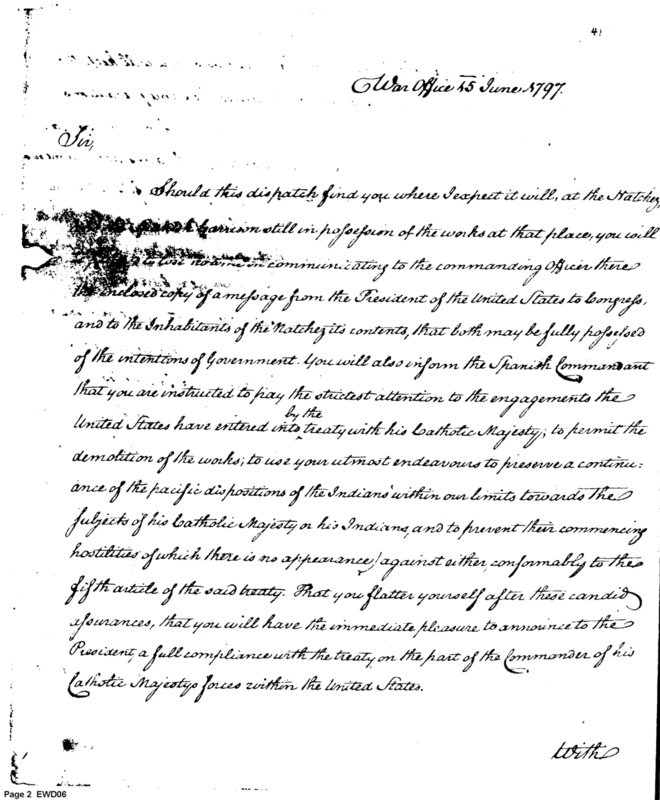 41
War Office 15 June 1797.
Sir,
Should this dispatch find you where I expect it will, at the Natchez,
Garrison still in possession of the works at that place, you will
to lose no time in communicating to the commanding Officer there
the enclosed copy of a message from the President of the United States to Congress,
and to the Inhabitants of the Natchez its contents, that both may be fully possessed
of the intentions of Government. You will also inform the Spanish Commandant
that you are instructed to pay the strictest attention to the engagements the
United States have entered into by the treaty with his Catholic Majesty; to permit the
demolition of the works; to use your utmost endeavours to preserve a continu:
ance of the pacific dispositions of the Indians within our limits towards the
subjects of his Catholic Majesty or his Indians, and to prevent their commencing
hostilities (of which there is no appearance) against either, conformably to the
fifth article of the said treaty. That you flatter yourself after these candid
assurances, that you will have the immediate pleasure to announce to the
President, a full compliance with the treaty, on the part of the Commander of his
Catholic Majestys forces within the United States.
With
Page 2 EWD06